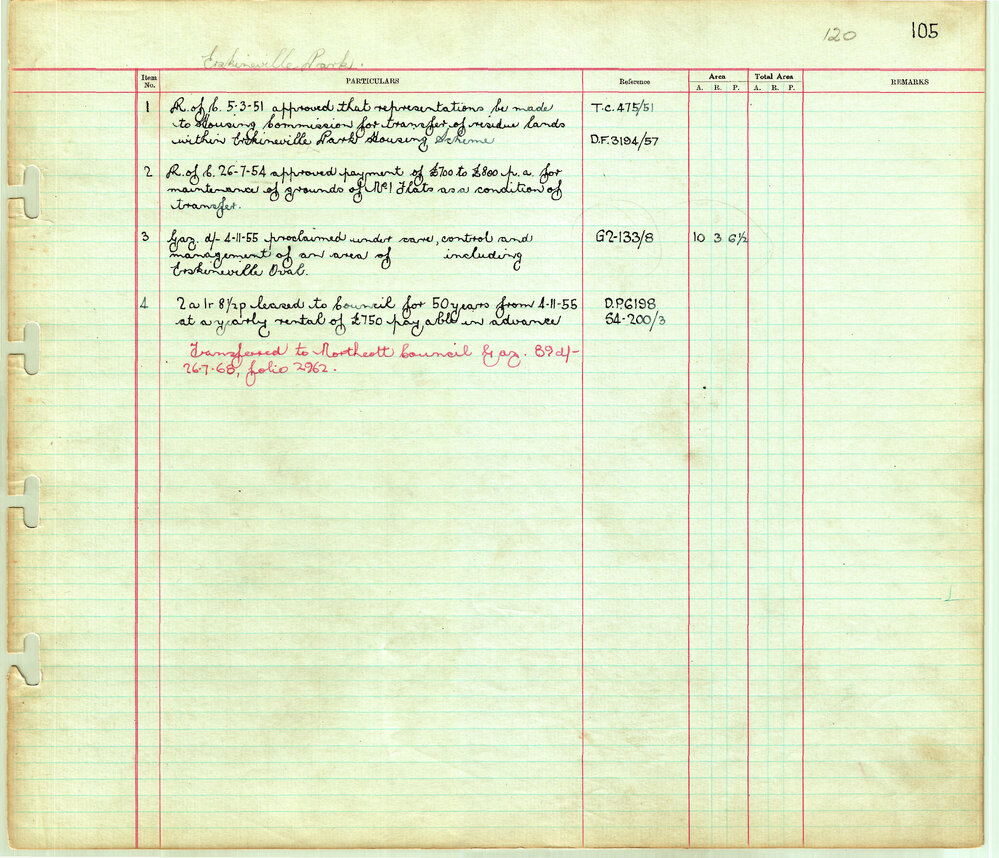 120 105
Erskineville Park.
Item No. PARTICULARS Reference Area Total Area REMARKS
A. R. P. A. R. P.
1 R. of C. 5-3-51 approved that representations be made T.C. 475/51
to Housing Commission for transfer of residue lands
within Erskineville Park Housing Scheme D.F. 3194/57
2 R. of C. 26-7-54 approved payment of £700 to £800 p.a. for
maintenance of grounds of No1 Flats as a condition of
transfer.
3 Gaz. d/- 4-11-55 proclaimed under care, control and G2-133/8 10 3 6½
management of an area of including
Erskineville Oval.
4 2a 1r 8½p leased to Council for 50 years from 4-11-55 D.P.6198
at a yearly rental of £750 payable in advance S4-200/3
Transferred to Northcott Council Gaz. 89 d/-
26.7.68, folio 2962.